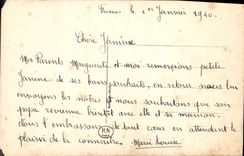 le 1er Janvier 1940.
Chère Jeannine
Mes Parents Marguerite et moi remercions petite
Jeannine de ses bons souhaits, en retour nous lui
envoyons les nôtres et nous souhaitons que son
papa revienne bientôt avec elle et sa maman.
Nous l'embrassons de tout cœur en attendant le
plaisir de la connaître. Marie Louise
HN